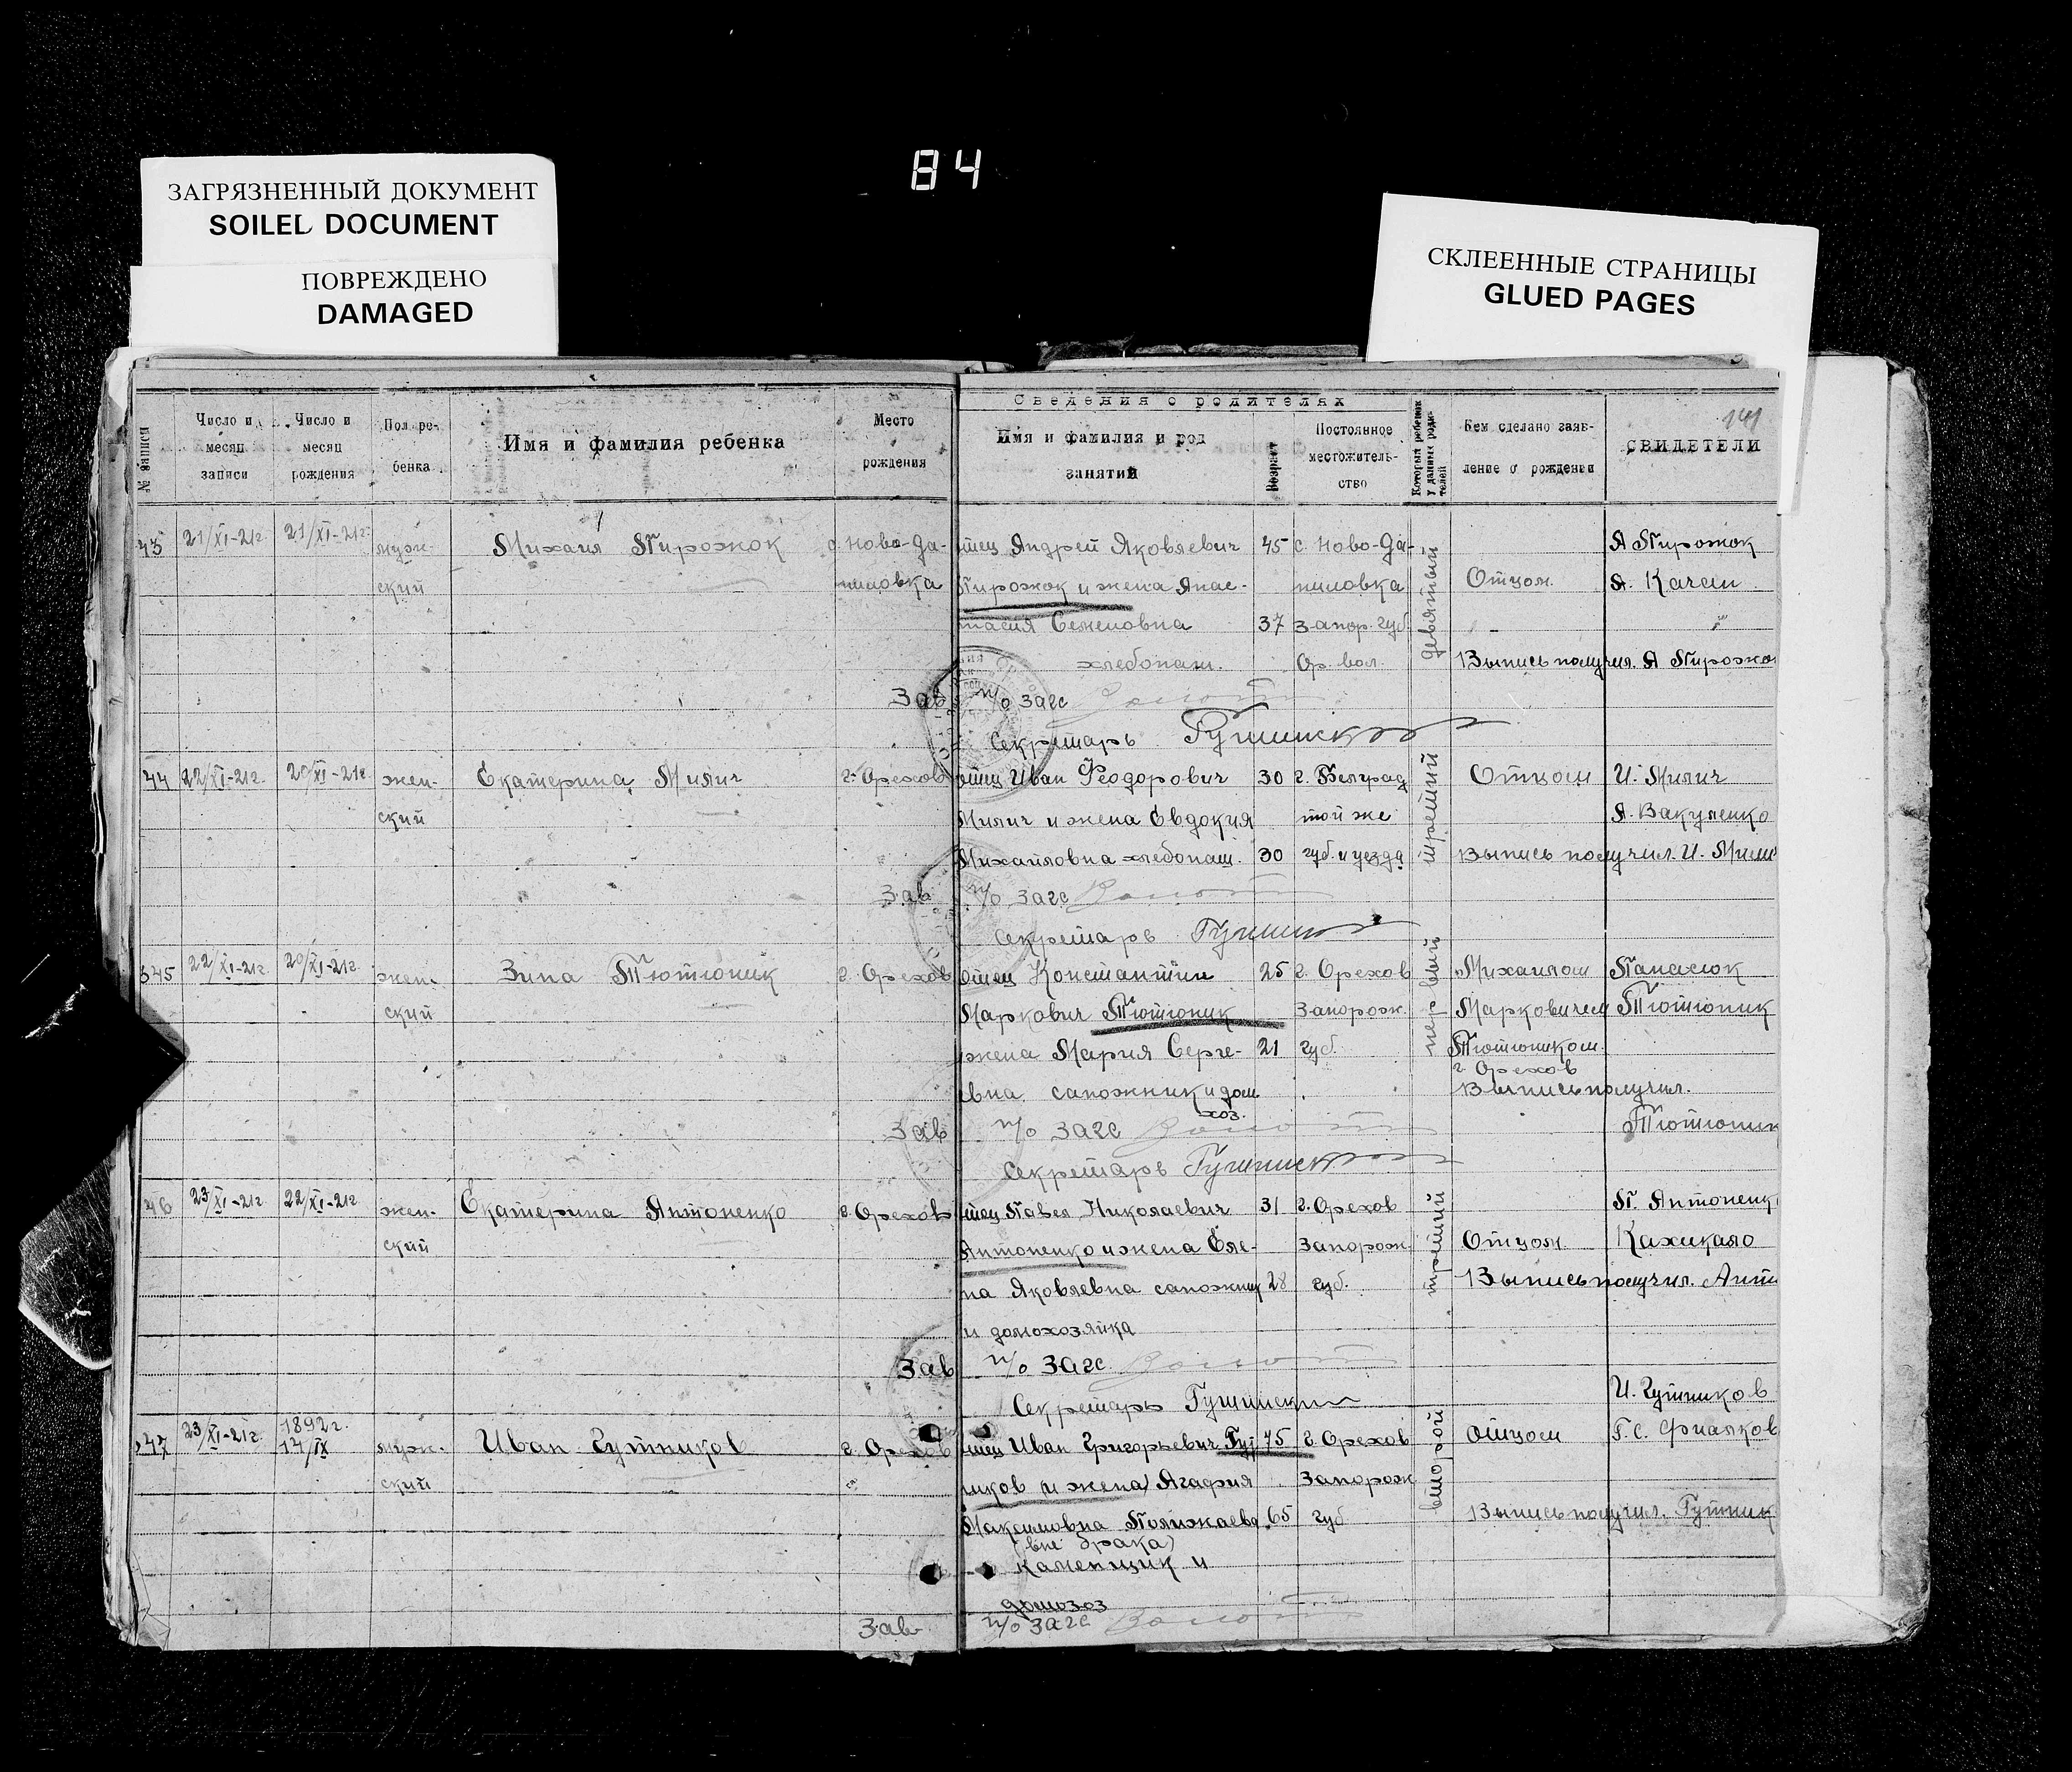 84
ЗАГРЯЗНЕННЫЙ ДОКУМЕНТ
SOILED DOCUMENT
ПОВРЕЖДЕНО
DAMAGED
СКЛЕЕННЫЕ СТРАНИЦЫ
GLUED PAGES
141
Сведения о родителях
№ записи
Число и месяц записи
Число и месяц рождения
Пол ребенка
Имя и фамилия ребенка
Место рождения
Имя и фамилия и род занятий
Возраст
Постоянное местожительство
Который ребенок у данных родителей
Кем сделано заявление о рождении
СВИДЕТЕЛИ
43 21/XI-21г. 21/XI-21г. муж- Михаил Пирожок с. Ново-Да- отец Андрей Яковлевич 45 с. Ново-Да- девятый А Пирожок
ский ниловка Пирожок и жена Анас- ниловка Отцом А. Качан
тасия Семеновна 37 Запор. губ. "
хлебопаш. Ор. вол. Выпись получил. А Пирожок
Зав п/о Загс
Секретарь
44 22/XI-21г. 20/XI-21г. жен- Екатерина Милич г. Орехов отец Иван Феодорович 30 г. Белград третий Отцом И. Милич
ский Милич и жена Евдокия той же А. Вакуленко
Михайловна хлебопаш. 30 губ. и уезда Выпись получил. И. Милич
Зав п/о Загс
Секретарь
345 22/XI-21г. 20/XI-21г. жен- Зина Тютюник г. Орехов отец Константин 25 г. Орехов первый Михаилом Панасюк
ский Маркович Тютюник Запорож. Марковичем Тютюник
жена Мария Серге- 21 губ. Тютюником
г. Орехов
евна сапожник и дом Выпись получил.
хоз.
Зав п/о Загс Тютюник
Секретарь
46 23/XI-21г. 22/XI-21г. жен- Екатерина Антоненко г. Орехов отец Павел Николаевич 31 г. Орехов третий П. Антоненк
ский Антоненко и жена Еле- Запорож. Отцом
на Яковлевна сапожник 28 губ. Выпись получил. Ант
и домохозяйка
Зав п/о Загс
Секретарь
И. Гутников
347 23/XI-21г. 1892г. 14/IX муж- Иван Гутников г. Орехов отец Иван Григорьевич Гут 75 г. Орехов второй отцом Г. С. Фиалков
ский ников и жена Агафия Запорож
Максимовна 65 губ Выпись получил. Гутник
(вне брака)
каменщик и
домохоз
Зав п/о Загс